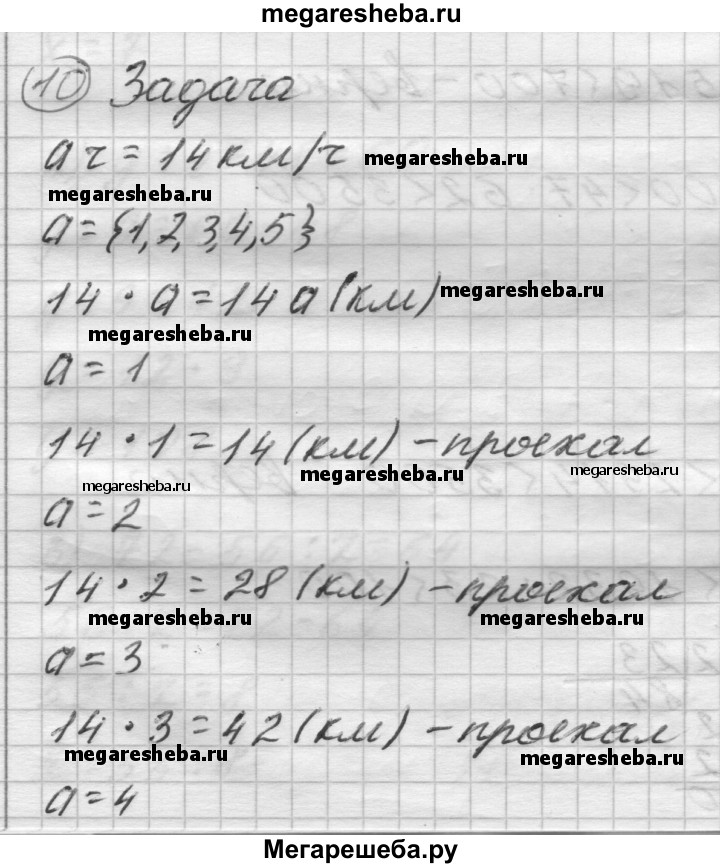 megaresheba.ru
10 Задача
а ч = 14 км/ч megaresheba.ru
megaresheba.ru
а = {1, 2, 3, 4, 5}
14 · а = 14 а (км) megaresheba.ru
megaresheba.ru
а = 1
14 · 1 = 14 (км) – проехал
megaresheba.ru megaresheba.ru megaresheba.ru
а = 2
14 · 2 = 28 (км) – проехал
megaresheba.ru megaresheba.ru
а = 3
14 · 3 = 42 (км) – проехал
megaresheba.ru megaresheba.ru
а = 4
Мегарешеба.ру